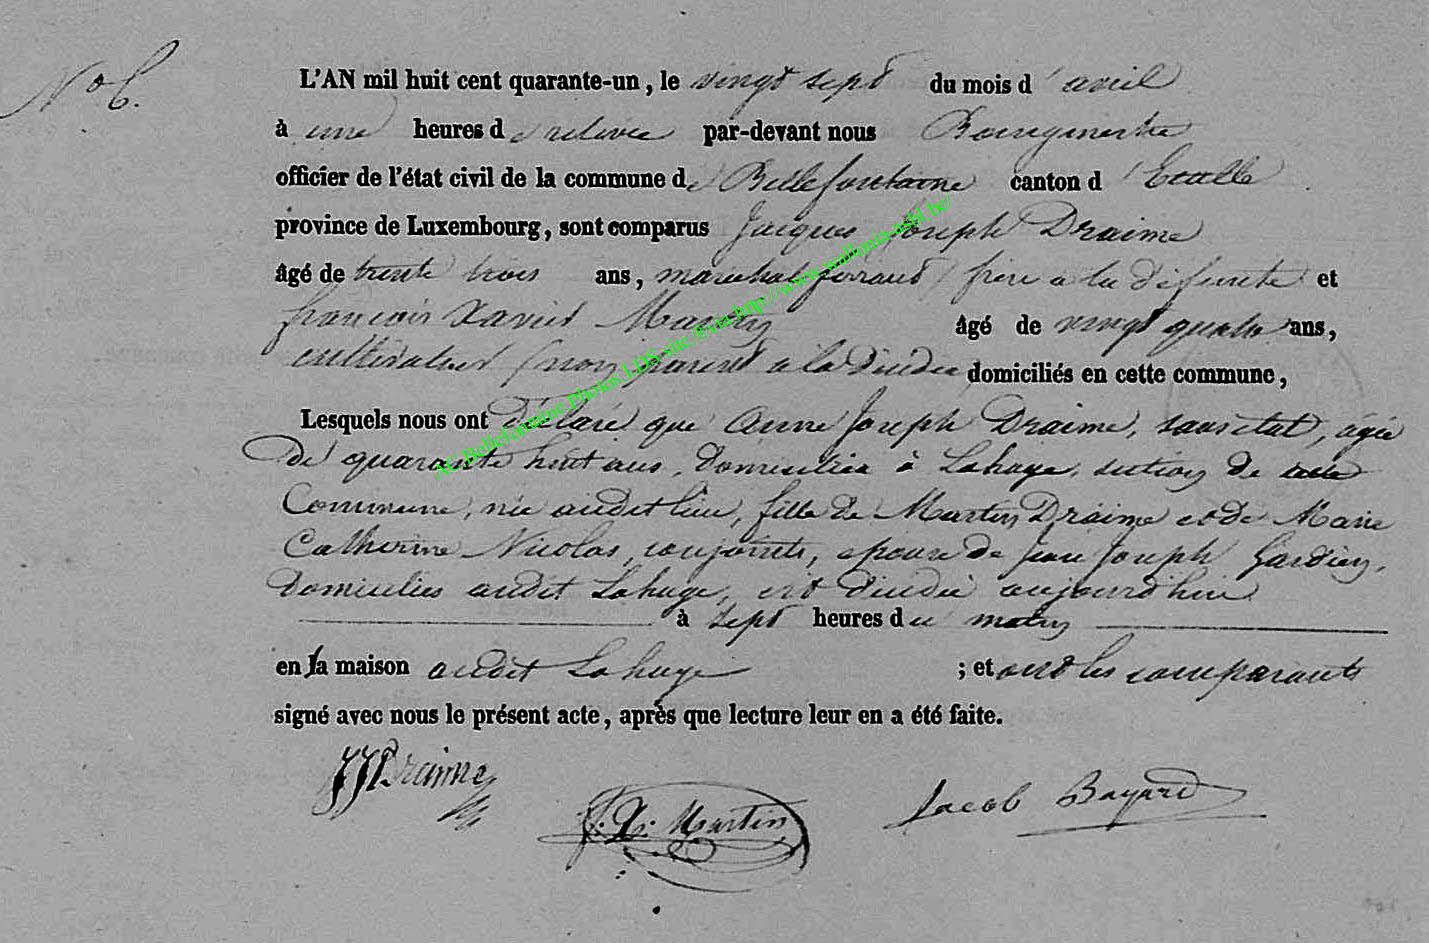 No 6.
L'AN mil huit cent quarante-un, le vingt sept du mois d'avril
à une heures de relevée par-devant nous Bourgmestre
officier de l'état civil de la commune de Bellefontaine canton d'Etalle
province de Luxembourg, sont comparus Jacques Joseph Draime
âgé de trente trois ans, maréchal ferrant, frère a la défunte et
françois Xavier Martin âgé de vingt quatre ans,
cultivateur, non parent a la décédée domiciliés en cette commune,
Lesquels nous ont déclaré que Anne Joseph Draime, sans état, agée
De quarante huit ans, Domiciliée à Lahage, section de cette
Commune, née audit lieu, fille de Martin Draime et de Marie
Catherine Nicolas, conjoints, epouse de Jean Joseph Gardien,
Domiciliés audit Lahage, est décédée aujourd'hui
à sept heures du matin
en la maison audit Lahage ; et ont les comparants
signé avec nous le présent acte, après que lecture leur en a été faite.
JJ Draime
f. X. Martin
Jacob Bayard
AE.Bellefontaine.Photos.LDS-site.fr via http://www.wallonia-asbl.be/